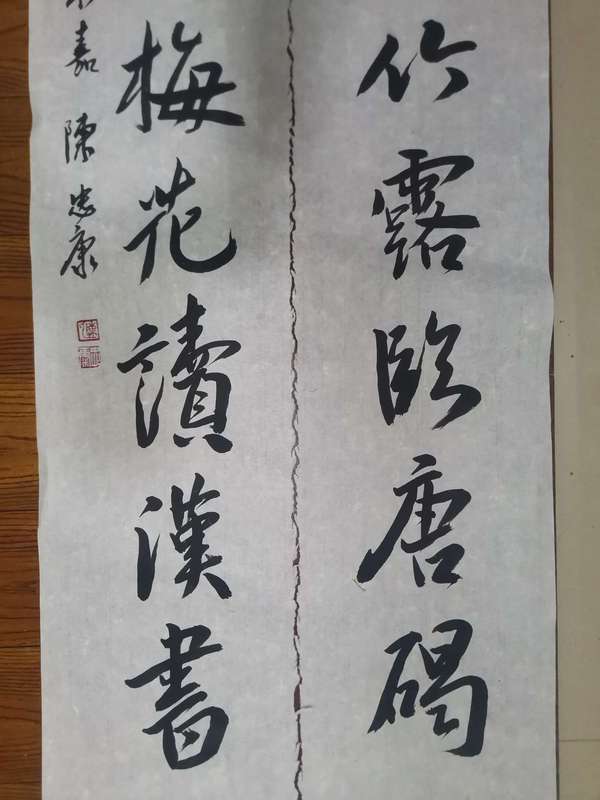 竹露臨唐碣
梅花讀漢書
嘉 陳忠康